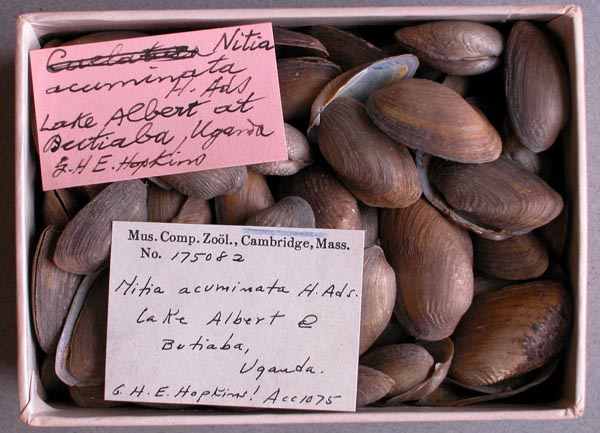 Nitia
acuminata
H. Ads
Lake Albert at
Butiaba, Uganda
G. H E. Hopkins
Mus. Comp. Zoöl., Cambridge, Mass.
No. 175082
Nitia acuminata H. Ads.
Lake Albert @
Butiaba,
Uganda.
G. H. E. Hopkins! Acc 1075